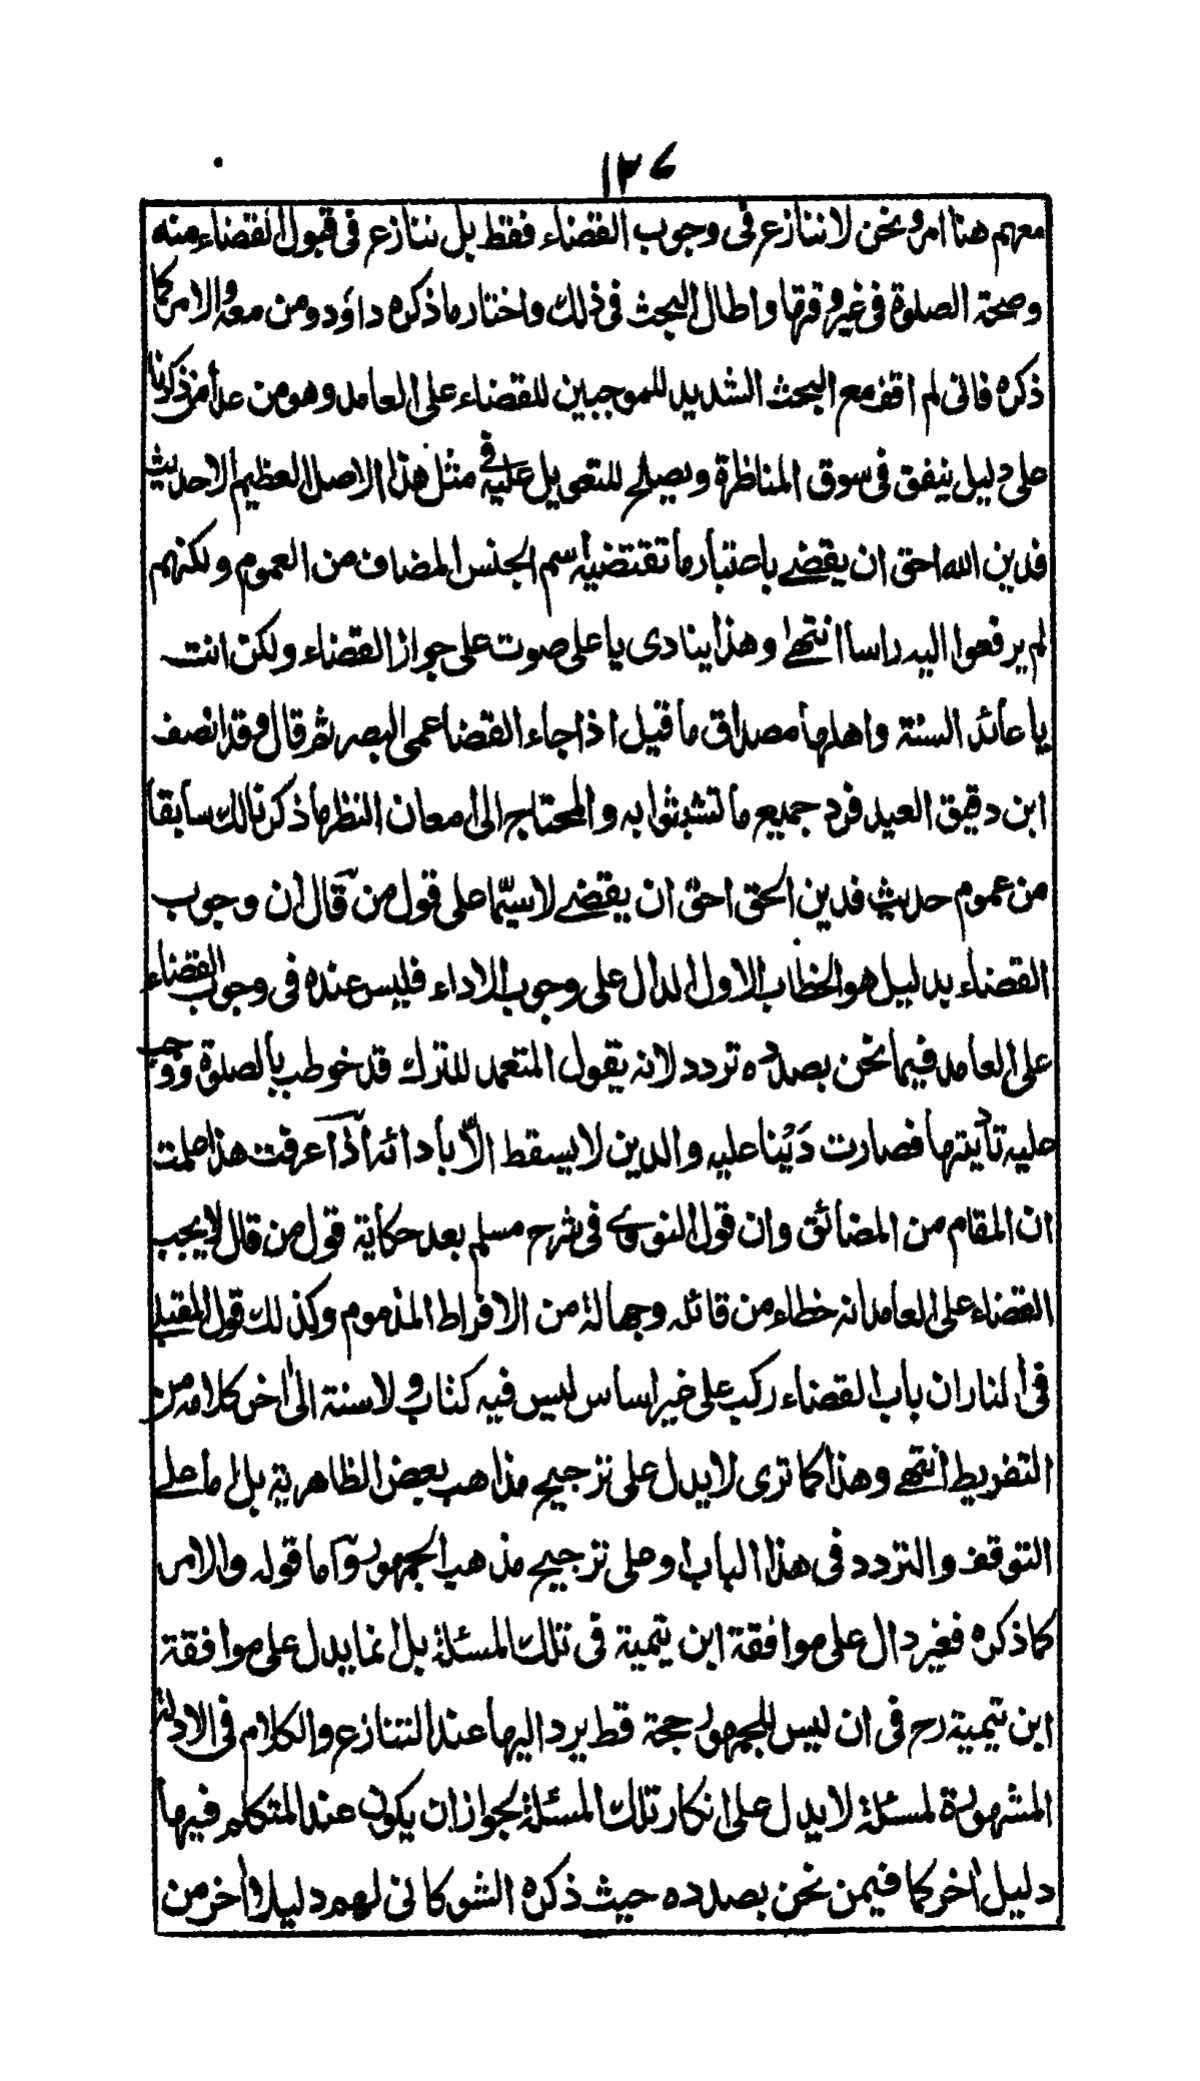 ١٣٧
معهم هنا امر ونحن لا ننازع فى وجوب القضاء فقط بل ننازع فى قبول القضاء منه
وصحة الصلوة فى غير وقتها واطال البحث فى ذلك واختار ما ذكره داؤد ومن معه والامر كما
ذكره فانى لم اقف مع البحث الشديد للموجبين للقضاء على العامد وهو من عدا من ذكرنا
على دليل ينفق فى سوق المناظرة ويصلح للتعويل عليه فى مثل هذا الاصل العظيم الا حديث
فدين الله احق ان يقضے باعتبار ما تقتضيه اسم الجنس المضاف من العموم ولكنهم
لم يرفعوا اليه راسا انتهے وهذا ينادى باعلى صوت على جواز القضاء ولكن انت
يا عائد السنة واهلها مصداق ما قيل اذا جاء القضا عمى البصر ثم قال وقد انصف
ابن دقيق العيد فرد جميع ما تشبثوا به والمحتاج الى امعان النظر ما ذكرنا لك سابقا
من عموم حديث فدين الحق احق ان يقضے لا سيّما على قول من قال ان وجوب
القضاء بدليل هو الخطاب الاول الدال على وجوب الاداء فليس عنده فى وجوب القضاء
على العامد فيما نحن بصدده تردد لانه يقول المتعمد للترك قد خوطب بالصلوة ووجب
عليه تأديتها فصارت دَيْنا عليه والدين لا يسقط الّا بأدائه اذا عرفت هذا علمت
ان المقام من المضائق وان قول النووے فى شرح مسلم بعد حكاية قول من قال لا يجب
القضاء على العامد انه خطاء من قائله وجهالة من الافراط المذموم وكذلك قول المقبلے
فى المنار ان باب القضاء ركب على غير اساس ليس فيه كتاب ولا سنة الى اٰخر كلامه من
التفريط انتهے وهذا كما ترى لا يدل على ترجيح مذاهب بعض الظاهرية بل اما علے
التوقف والتردد فى هذا الباب او على ترجيح مذهب الجمهور واما قوله والامر
كما ذكره فغير دال على موافقة ابن تيمية فى تلك المسئلة بل انما يدل على موافقة
ابن تيمية رح فى ان ليس للجمهور حجة قط يرد اليها عند التنازع والكلام فى الادلة
المشهورة لمسئلة لا يدل على انكار تلك المسئلة لجواز ان يكون عند المتكلم فيها
دليل اٰخر كما فيمن نحن بصدده حيث ذكره الشوكانى لهم دليلا اٰخر من